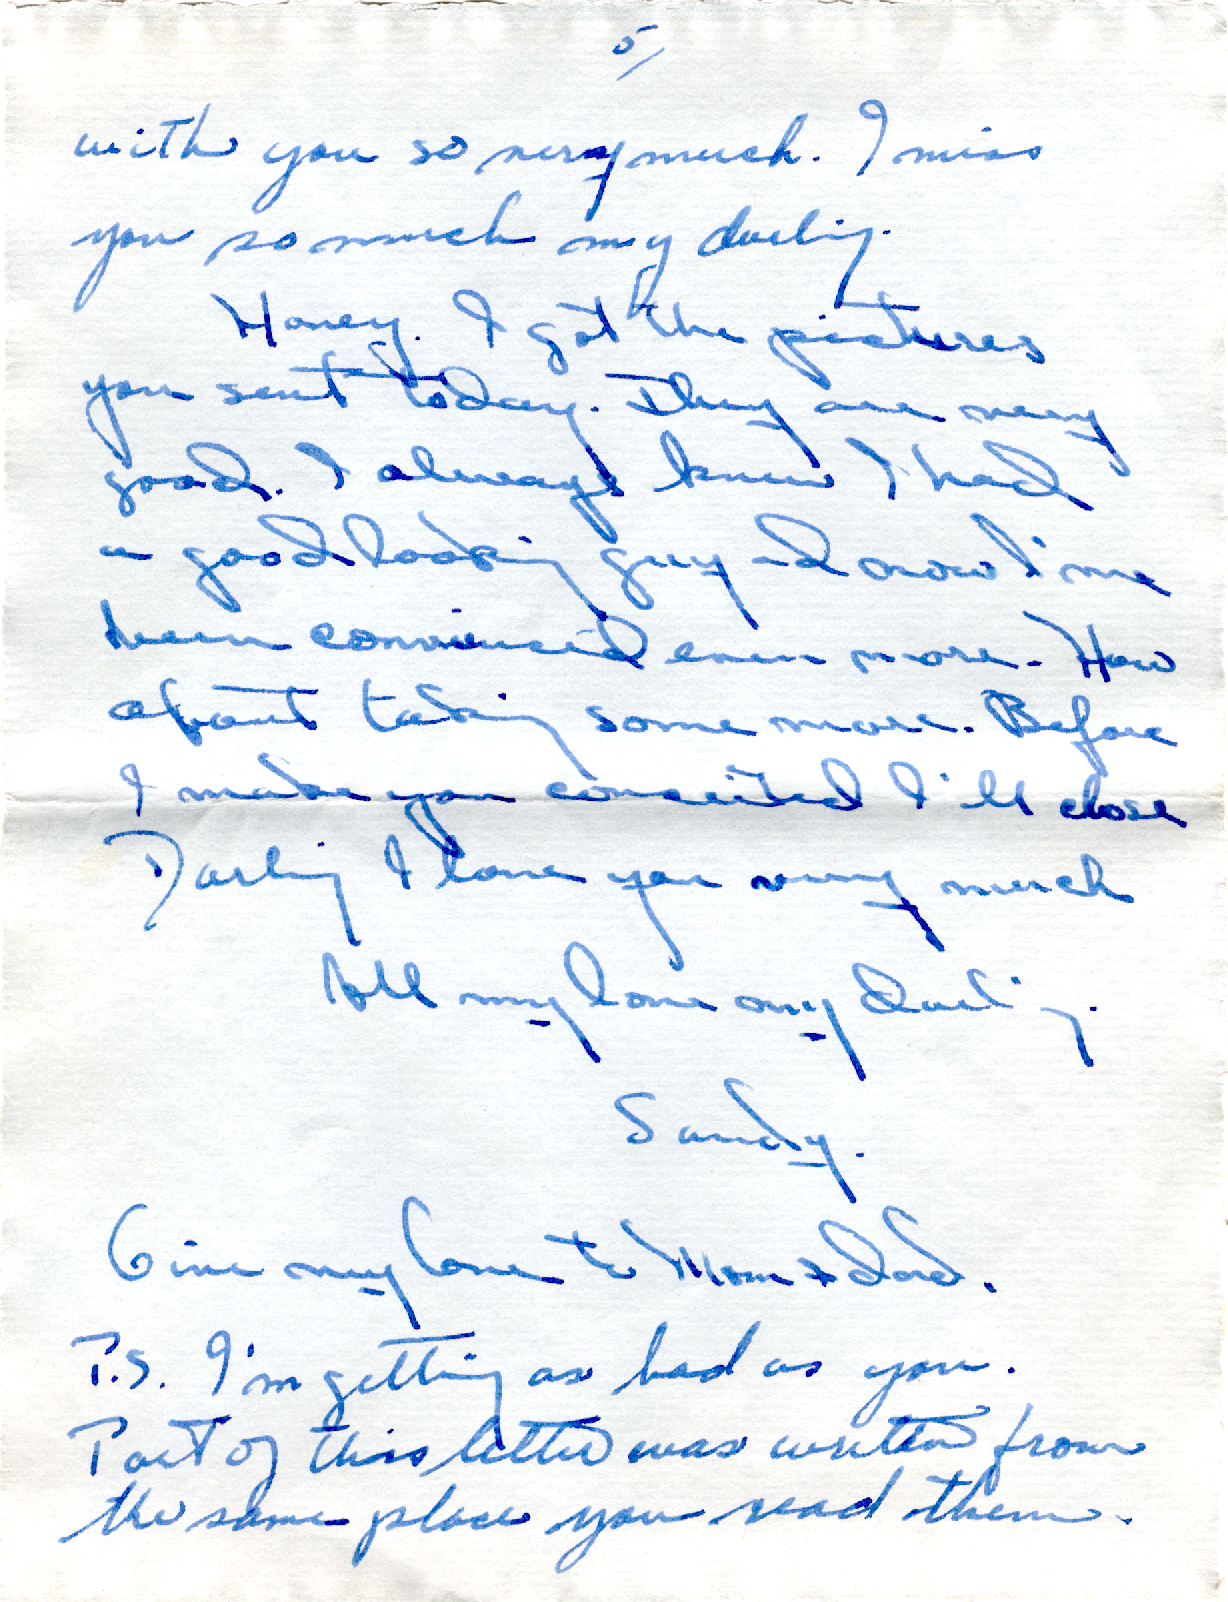 5/
with you so very much. I miss
you so much my darling.
Honey. I got the pictures
you sent today. They are very
good. I always knew I had
a good looking guy and now I've
been convienced even more. How
about taking some more. Before
I make you conceited I'll close
Darling I love you very much
All my love my darling.
Sandy.
Give my love to Mom & Dad.
P.S. I'm getting as bad as you.
Part of this letter was written from
the same place you read them.